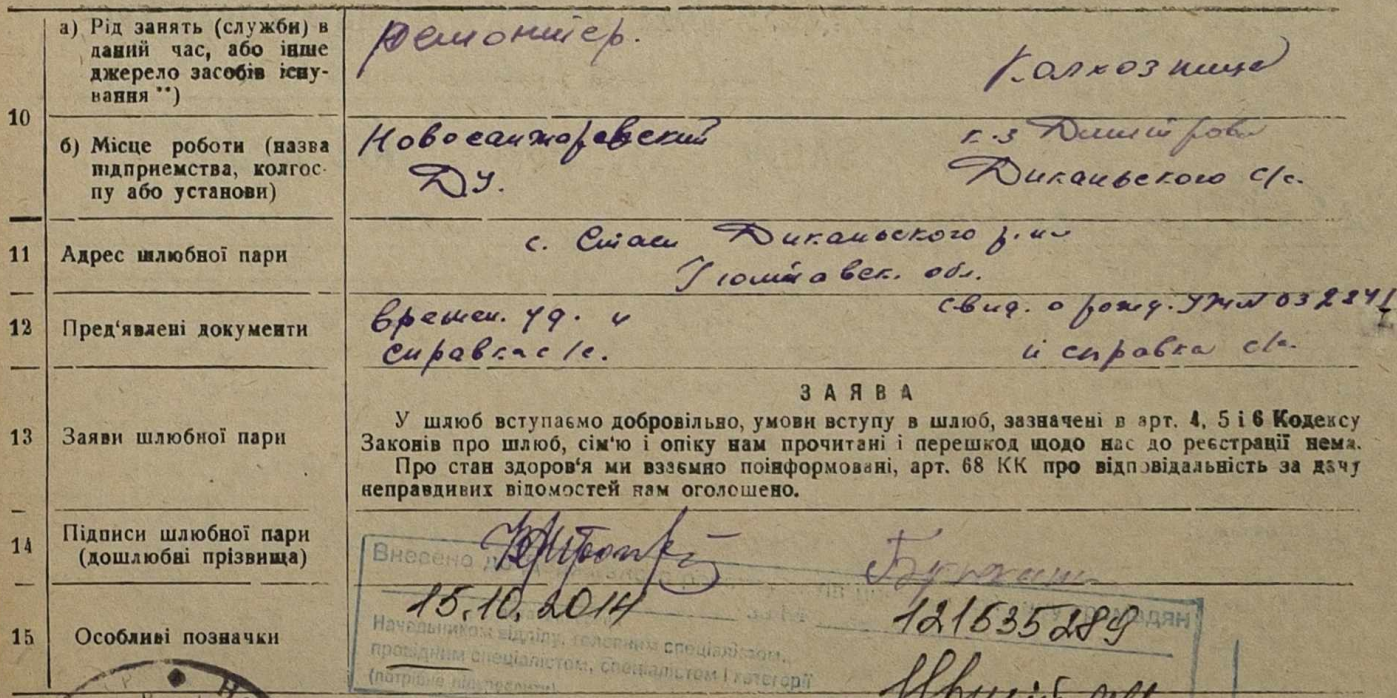 10
а) Рід занять (служби) в
даний час, або інше
джерело засобів існу-
вання **)
ремонтер.
Колхозница
б) Місце роботи (назва
підприємства, колгос-
пу або установи)
Новосанжаровский
ДУ.
к-з Димитрова
Диканьского с/с.
11
Адрес шлюбної пари
с. Стаси Диканьского р-на
Полтавск. обл.
12
Пред'явлені документи
времен. уд. и
справка с/с.
свид. о рожд.
и справка с/с.
13
Заяви шлюбної пари
ЗАЯВА
У шлюб вступаємо добровільно, умови вступу в шлюб, зазначені в арт. 4, 5 і 6 Кодексу
Законів про шлюб, сім'ю і опіку нам прочитані і перешкод щодо нас до реєстрації нема.
Про стан здоров'я ми взаємно поінформовані, арт. 68 КК про відповідальність за дачу
неправдивих відомостей нам оголошено.
14
Підписи шлюбної пари
(дошлюбні прізвища)
Внесено
15
Особливі позначки
15.10.2014
121635289
Начальником відділу, головним спеціалістом,
провідним спеціалістом, спеціалістом І категорії
(потрібне підкреслити)